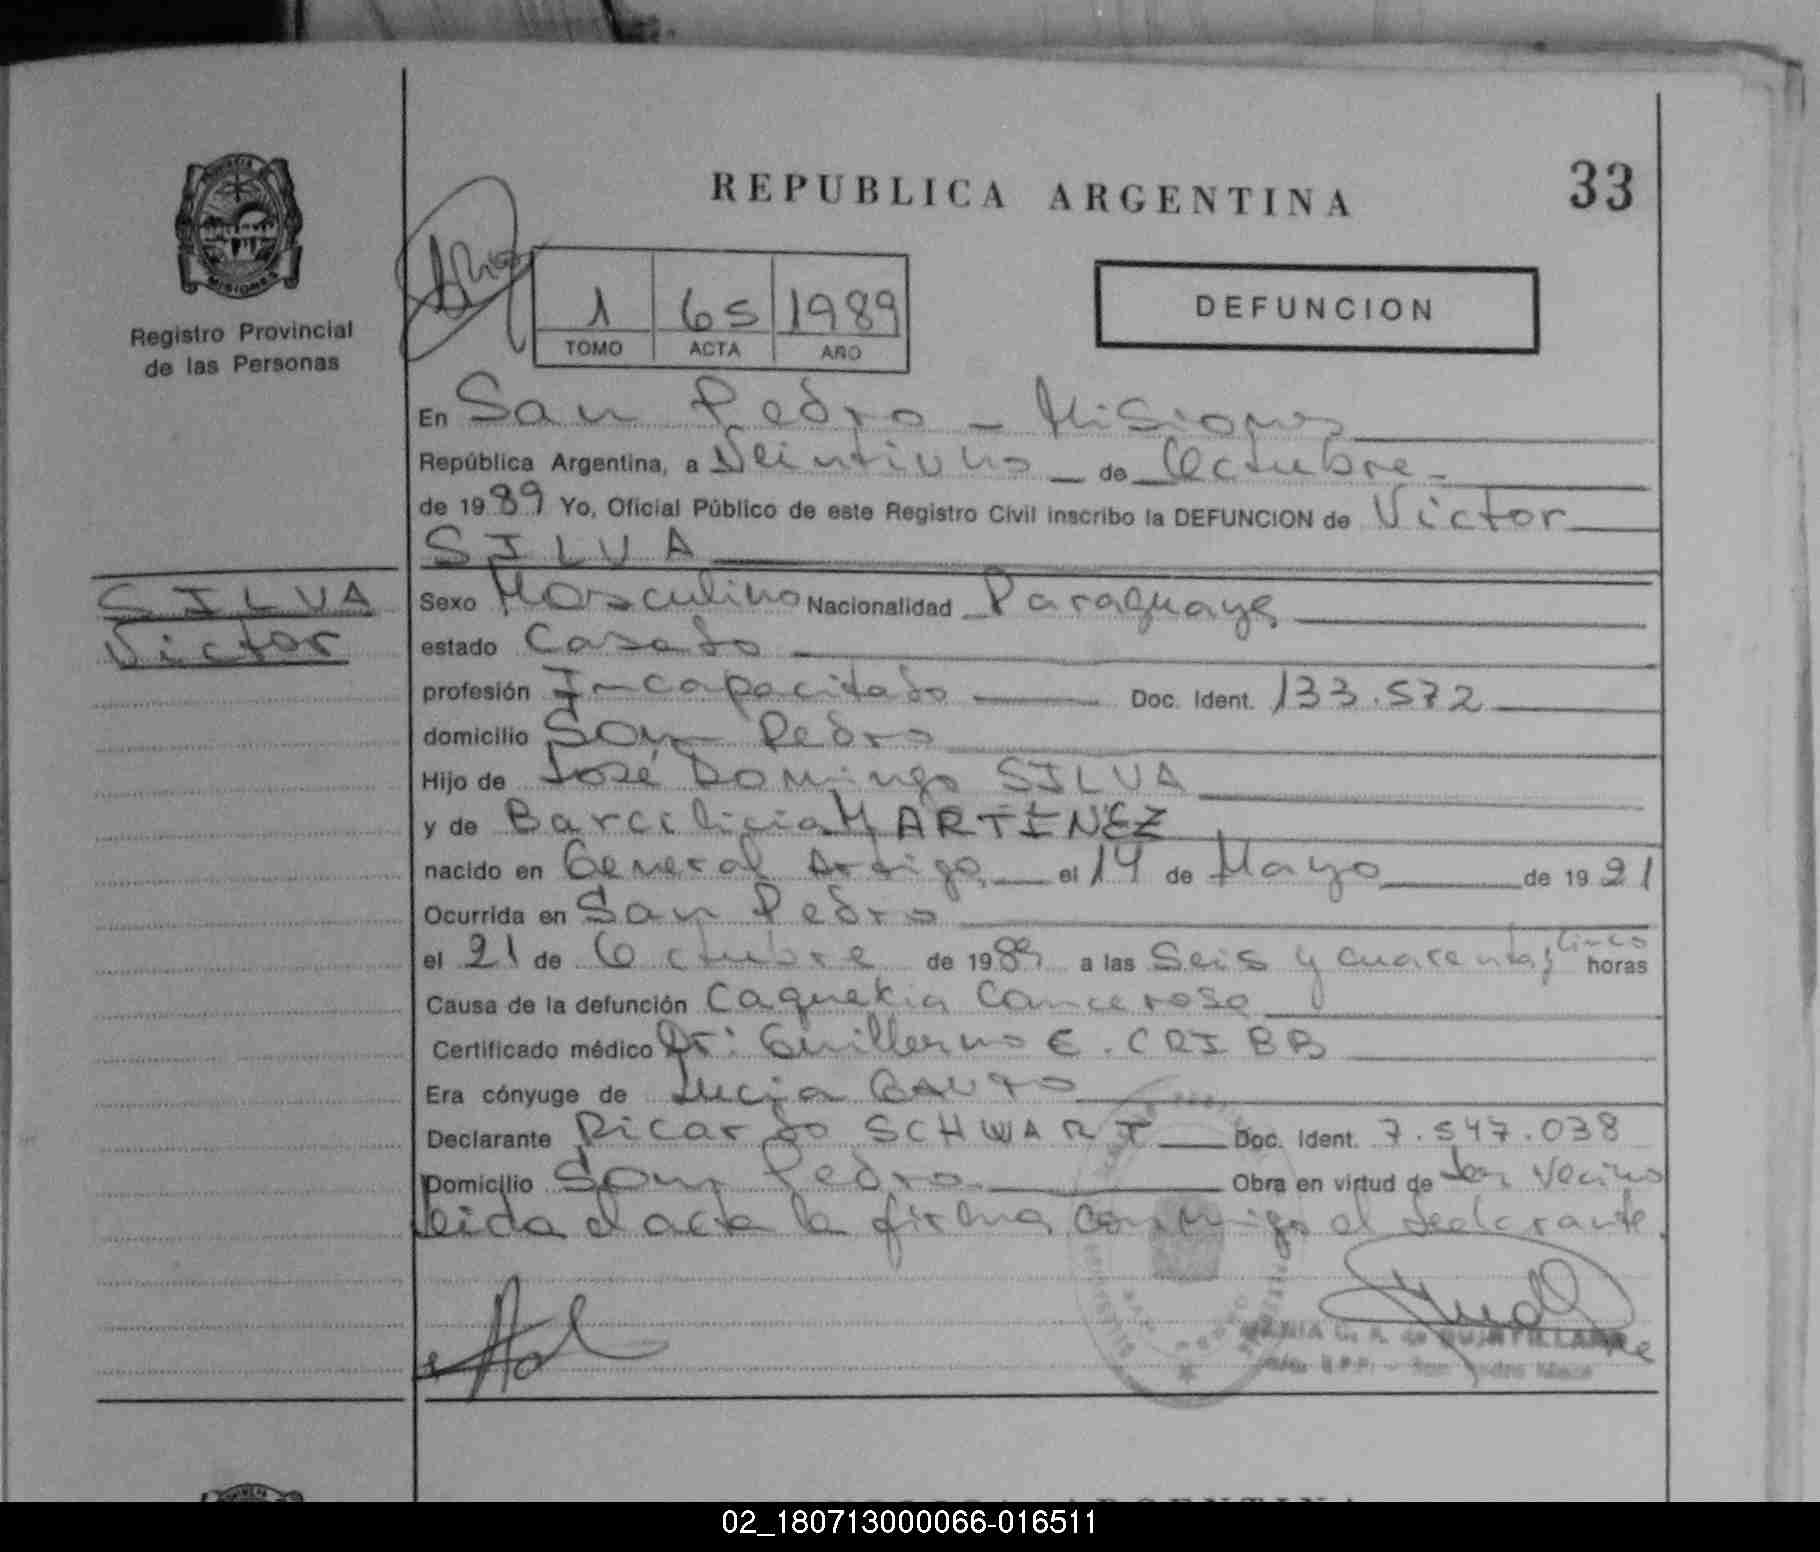 REPUBLICA ARGENTINA
33
PROVINCIA
MISIONES
Registro Provincial
de las Personas
1 65 1989
TOMO ACTA AÑO
DEFUNCION
En San Pedro - Misiones
República Argentina, a Veintiuno de Octubre
de 1989 Yo, Oficial Público de este Registro Civil inscribo la DEFUNCION de Victor
SILVA
SILVA
Victor
Sexo Masculino Nacionalidad Paraguaya
estado Casado
profesión Incapacitado Doc. Ident. 133.572
domicilio San Pedro
Hijo de José Domingo SILVA
y de Barcilicia MARTINEZ
nacido en General Artiga el 14 de Mayo de 1921
Ocurrida en San Pedro
el 21 de Octubre de 1989 a las Seis y cuarenta y cinco horas
Causa de la defunción Caquekia Cancerosa
Certificado médico Dr: Guillermo E. CRIBB
Era cónyuge de Lucia
Declarante Ricardo SCHWART Doc. Ident. 7.547.038
Domicilio San Pedro Obra en virtud de Ser Vecino
Leida el acta la firma conmigo el declarante.
02_180713000066-016511